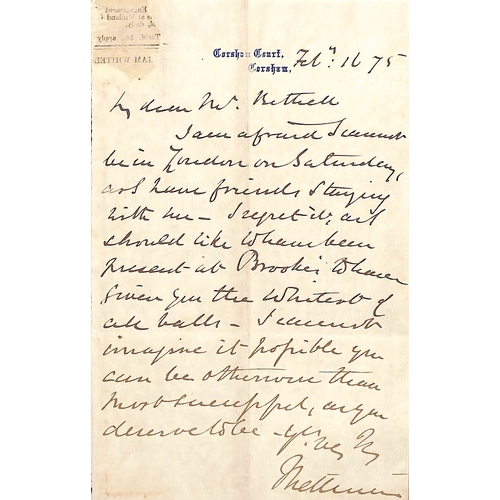 Corsham Court,
Corsham,
Feb.ʸ 16 75
My dear Mr. Bethell
I am afraid I cannot
be in London on Saturday,
as I have friends staying
with me – I regret it, as I
should like to have been
present at Brooks's to have
given you the whitest of
all balls – I cannot
imagine it possible you
can be otherwise than
most successful, as you
deserve to be – Yrs. very truly
Methuen